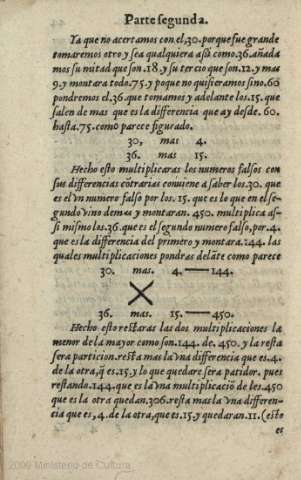 Parte segunda.
Ya que no acertamos con el,30.porque fue grande
tomaremos otro y sea qualquiera assi como.36.añada
mos su mitad que son.18.y su tercio que son.12.y mas
9.y montara todo.75.y poque no quisieramos sino.60
pondremos el.36.que tomamos y adelante los.15.que
salen de mas que es la differencia que ay desde.60.
hasta.75.como parece figurado.
30, mas 4.
36. mas 15.
Hecho esto multiplicaras los numeros falsos con
sus differencias cõtrarias conuiene a saber los.30.que
es el vn numero falso por los.15.que es lo que en el se-
gundo vino demas y montaran.450.multiplica as-
si mismo los.36.que es el segundo numero falso,por.4.
que es la differencia del primero y montara.144.las
quales multiplicaciones pondras delãte como parece
30. mas. 4.—144.
X
36. mas. 15.—450.
Hecho esto restaras las dos multiplicaciones la
menor de la mayor como son.144.de,450.y la resta
sera particion.resta mas la vna differencia que es.4.
de la otra,q̃ es.15.y lo que quedare sera partidor.pues
restando.144.que es la vna multiplicaciõ de los.450
que es la otra quedan.306.resta mas la vna differen-
cia que es,4.de la otra,que es.15.y quedaran.11.(esto
et
2009 Ministerio de Cultura